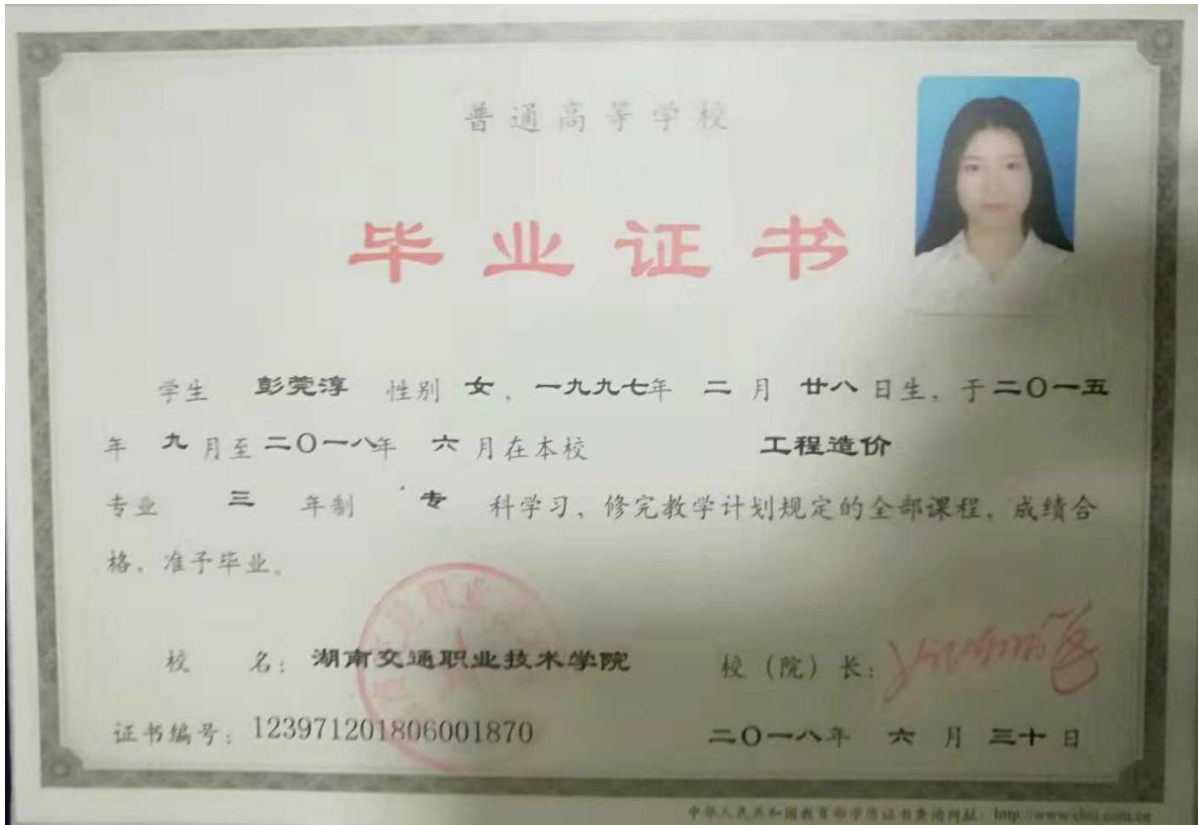 普通高等学校
毕业证书
学生 彭莞淳 性别 女、一九九七年 二 月 廿八 日生，于二〇一五
年 九 月至 二〇一八年 六 月在本校 工程造价
专业 三 年制 专 科学习，修完教学计划规定的全部课程，成绩合
格，准予毕业。
校 名：湖南交通职业技术学院 校（院）长：
证书编号：123971201806001870 二〇一八年 六 月 三十 日
中华人民共和国教育部学历证书查询网址：http://www.chsi.com.cn